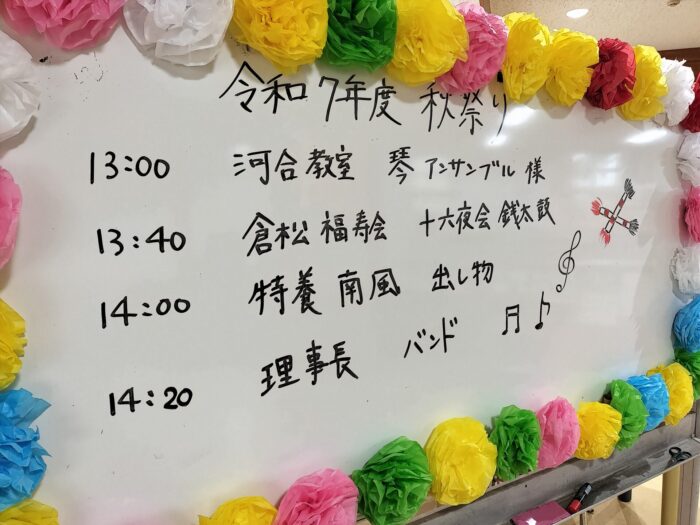 令和7年度 秋祭り
13:00 河合教室 琴アンサンブル様
13:40 倉松福寿会 十六夜会銭太鼓
14:00 特養南風 出し物
14:20 理事長 バンド